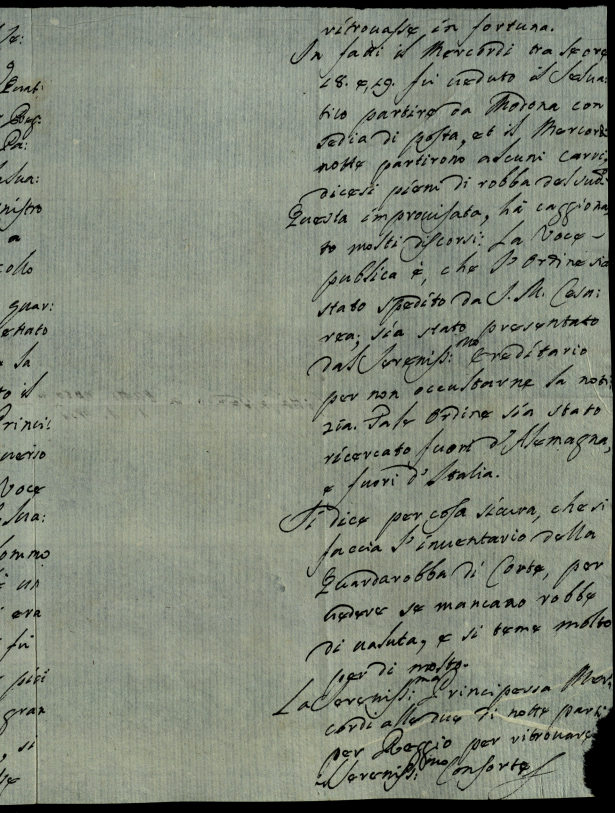 ritrovasse in fortuna.
In fatti il Mercordi tra le ore
18. e, 19. fu veduto il Salva:
tico partire da Modona con
sedia di posta, et il Mercordi
notte partirono alcuni carri,
dicesi pieni di robba del sud.o
Questa improvisata, hà caggiona
to molti discorsi: La Voce
publica è, che l'Ordine sia
stato spedito da S. M. Cesa:
rea; sia stato presentato
dal Sereniss:mo Ereditario
per non occultarne la noti
zia. Tale Ordine sia stato
ricercato fuori d'Alemagna,
e fuori d'Italia.
Si dice per cosa sicura, che si
faccia l'inventario della
Guardarobba di Corte, per
vedere se mancano robbe
di valuta, e si teme molto
per di molto.
La Sereniss:ma Principessa Mer:
cordi alle due di notte partì
per Reggio per ritrovare
il Sereniss:mo Consorte
nistro
a
collo
quar:
la
to il
Princi:
Voce
è un
era
fù
gran
, si